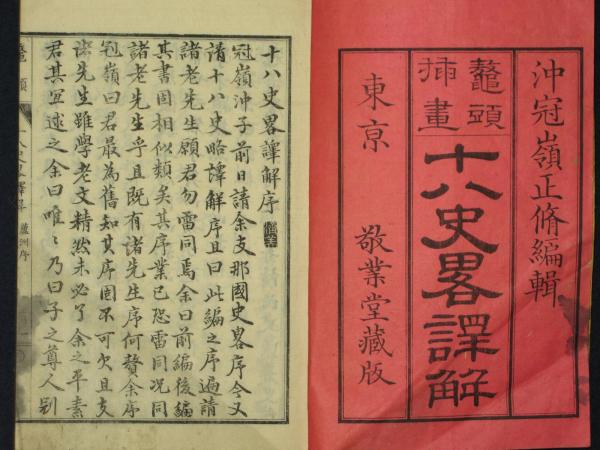 沖冠嶺正脩編輯
鼇頭
插畫
十八史畧譯解
東亰
敬業堂藏版
十八史畧譯解序
冠嶺沖子前日請余支那國史畧序今又
請十八史略譯解序且曰此編之序遍請
諸老先生願君勿雷同焉余曰前編後編
其書固相似類矣其序業已恐雷同況同
諸老先生乎且既有諸先生序何贅余序
冠嶺曰君最為舊知其序固不可欠且支
諸先生雖學老文精然未必了余之平素
君其冝述之余曰唯〻乃曰子之尊人別
鼇頭
十八史畧譯解
蘆洲序